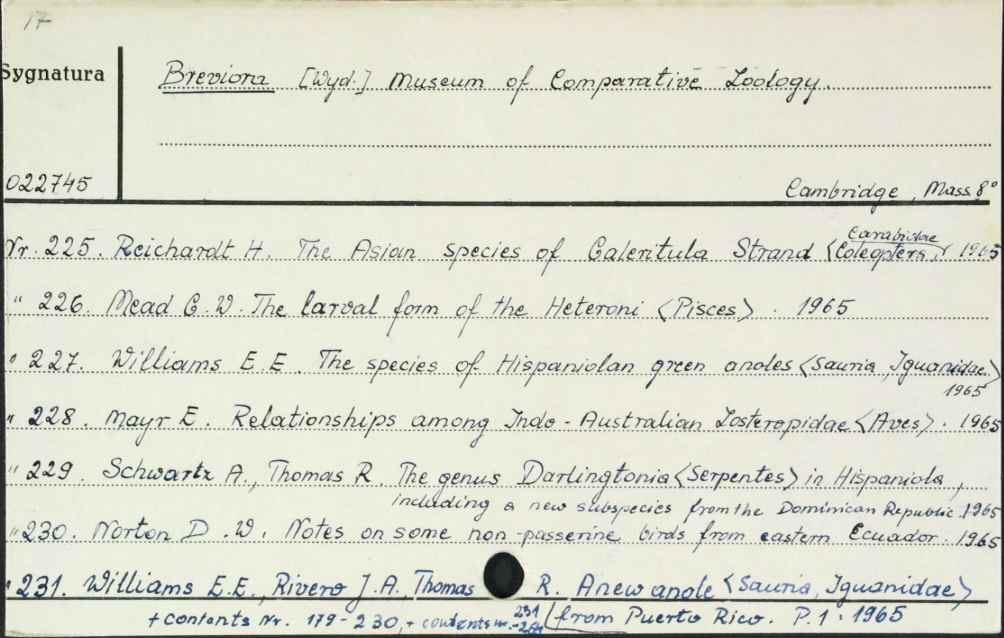 17
Sygnatura
Breviora [Wyd.] Museum of Comparative Zoology.
022745
Cambridge, Mass. 8°
Nr. 225. Reichardt H. The Asian species of Galeritula Strand <Coleoptera, Carabidae> 1965
" 226. Mead G. W. The larval form of the Heteromi <Pisces>. 1965
" 227. Williams E. E. The species of Hispaniolan green anoles <Sauria, Iguanidae>
1965
" 228. Mayr E. Relationships among Indo-Australian Zosteropidae <Aves>. 1965
" 229. Schwartz A., Thomas R. The genus Darlingtonia <Serpentes> in Hispaniola,
including a new subspecies from the Dominican Republic. 1965
" 230. Norton D. W. Notes on some non-passerine birds from eastern Ecuador. 1965
" 231. Williams E.E., Rivero J.A., Thomas R. A new anole <Sauria, Iguanidae>
from Puerto Rico. P. 1. 1965
+ contents Nr. 179-230, + contents nr. 231